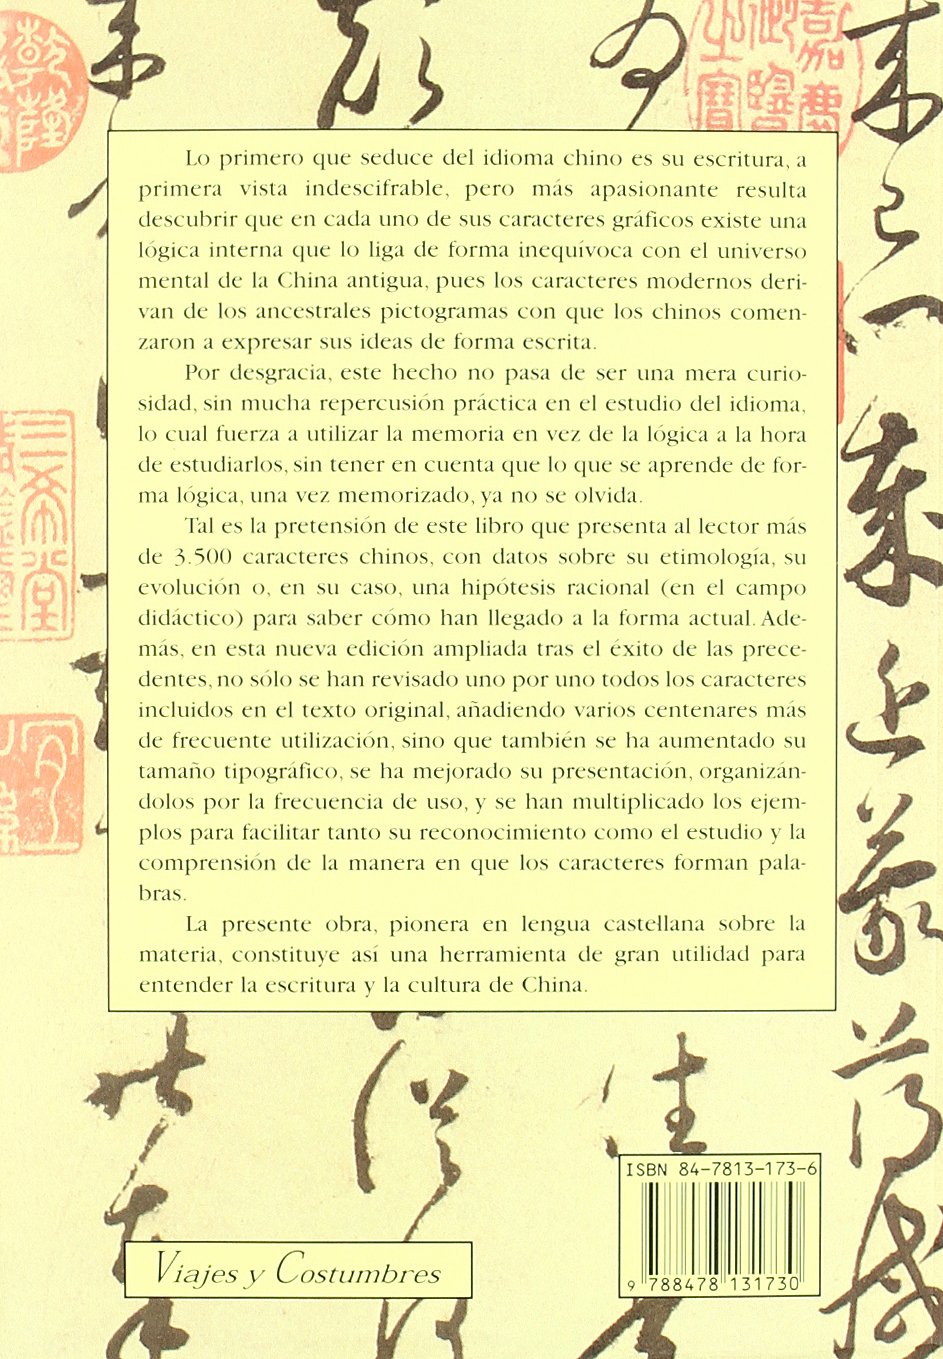 Lo primero que seduce del idioma chino es su escritura, a
primera vista indescifrable, pero más apasionante resulta
descubrir que en cada uno de sus caracteres gráficos existe una
lógica interna que lo liga de forma inequívoca con el universo
mental de la China antigua, pues los caracteres modernos deri-
van de los ancestrales pictogramas con que los chinos comen-
zaron a expresar sus ideas de forma escrita.
Por desgracia, este hecho no pasa de ser una mera curio-
sidad, sin mucha repercusión práctica en el estudio del idioma,
lo cual fuerza a utilizar la memoria en vez de la lógica a la hora
de estudiarlos, sin tener en cuenta que lo que se aprende de for-
ma lógica, una vez memorizado, ya no se olvida.
Tal es la pretensión de este libro que presenta al lector más
de 3.500 caracteres chinos, con datos sobre su etimología, su
evolución o, en su caso, una hipótesis racional (en el campo
didáctico) para saber cómo han llegado a la forma actual. Ade-
más, en esta nueva edición ampliada tras el éxito de las prece-
dentes, no sólo se han revisado uno por uno todos los caracteres
incluidos en el texto original, añadiendo varios centenares más
de frecuente utilización, sino que también se ha aumentado su
tamaño tipográfico, se ha mejorado su presentación, organizán-
dolos por la frecuencia de uso, y se han multiplicado los ejem-
plos para facilitar tanto su reconocimiento como el estudio y la
comprensión de la manera en que los caracteres forman pala-
bras.
La presente obra, pionera en lengua castellana sobre la
materia, constituye así una herramienta de gran utilidad para
entender la escritura y la cultura de China.
ISBN 84-7813-173-6
9 788478 131730
Viajes y Costumbres
三希堂